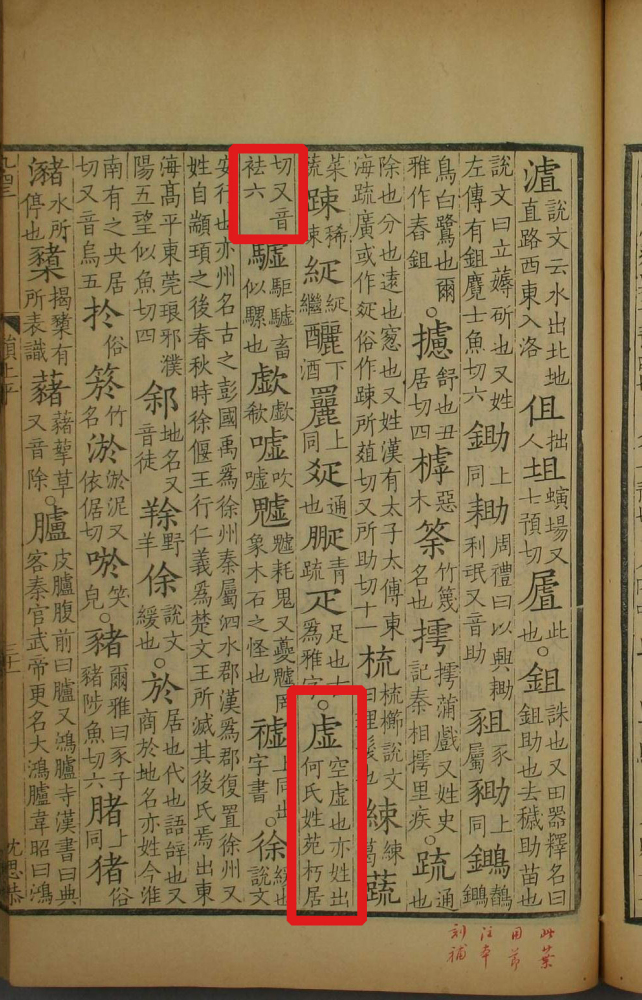 瀘說文云水出北地直路西東入洛伹拙人坥螾場又士預切此也○鉏誅也又田器釋名曰鉏助也去穢助苗也
說文曰立薅斫也又姓左傳有鉏麑士魚切六鋤上同耡周禮曰以興耡利甿又音助豠豕屬上同
鳥白鷺也爾雅作舂鉏○攄舒也丑居切四樗惡木筡竹篾名也摴摴蒲戲又姓史記秦相摴里疾○疏通也
除也分也遠也窻也又姓漢有太子太傅東海疏廣或作疎俗作踈所葅切又所助切十一梳梳櫛說文曰理髮也綀綀葛蔬
菜蔬踈稀踈繼釃下酒上同通也疏疋足也為雅字○虛空虛也亦姓出何氏姓苑朽居
切又音祛六驉駏驉畜似騾也歔歔欷噓吹噓魖魖耗鬼又夔魖罔象木石之怪也上同出字書○徐緩也說文
安行也亦州名古之彭國禹爲徐州秦屬泗水郡漢爲郡復置徐州又姓自顓頊之後春秋時徐偃王行仁義爲楚文王所滅其後氏焉出東
海高平東莞琅邪濮陽五望似魚切四䣄地名又音徒野羊俆說文緩也○於居也代也語辝也又商於地名亦姓今淮
南有之央居切又音烏五扵俗箊竹名淤淤泥又依倨切唹笑皃○豬爾雅曰豕子豬陟魚切六䐗上同猪俗
瀦水所停也櫫揭櫫有所表識藸藸草又音除○臚皮臚腹前曰臚又鴻臚寺漢書曰典客秦官武帝更名大鴻臚韋昭曰鴻
韻上平
沈思恭
此葉
用節
注本
刻補